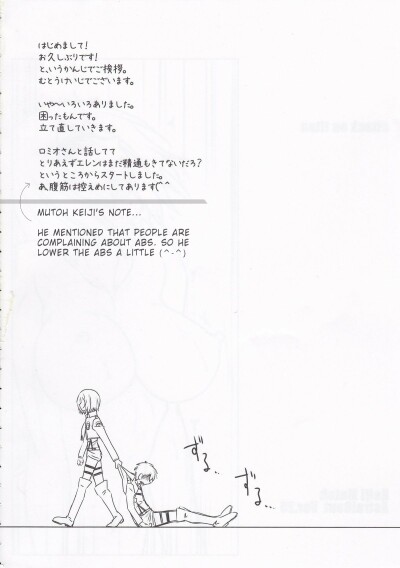 はじめまして!
お久しぶりです!
と、いうかんじでご挨拶。
むとうけいじでございます。
いや~いろいろありました。
困ったもんです。
立て直していきます。
ロミオさんと話してて
とりあえずエレンはまだ精通もきてないだろ?
というところからスタートしました。
あ、腹筋は控えめにしてあります(^^
MUTOH KEIJI'S NOTE...
HE MENTIONED THAT PEOPLE ARE
COMPLAINING ABOUT ABS. SO HE
LOWER THE ABS A LITTLE (^-^)
ずる…
ずる…